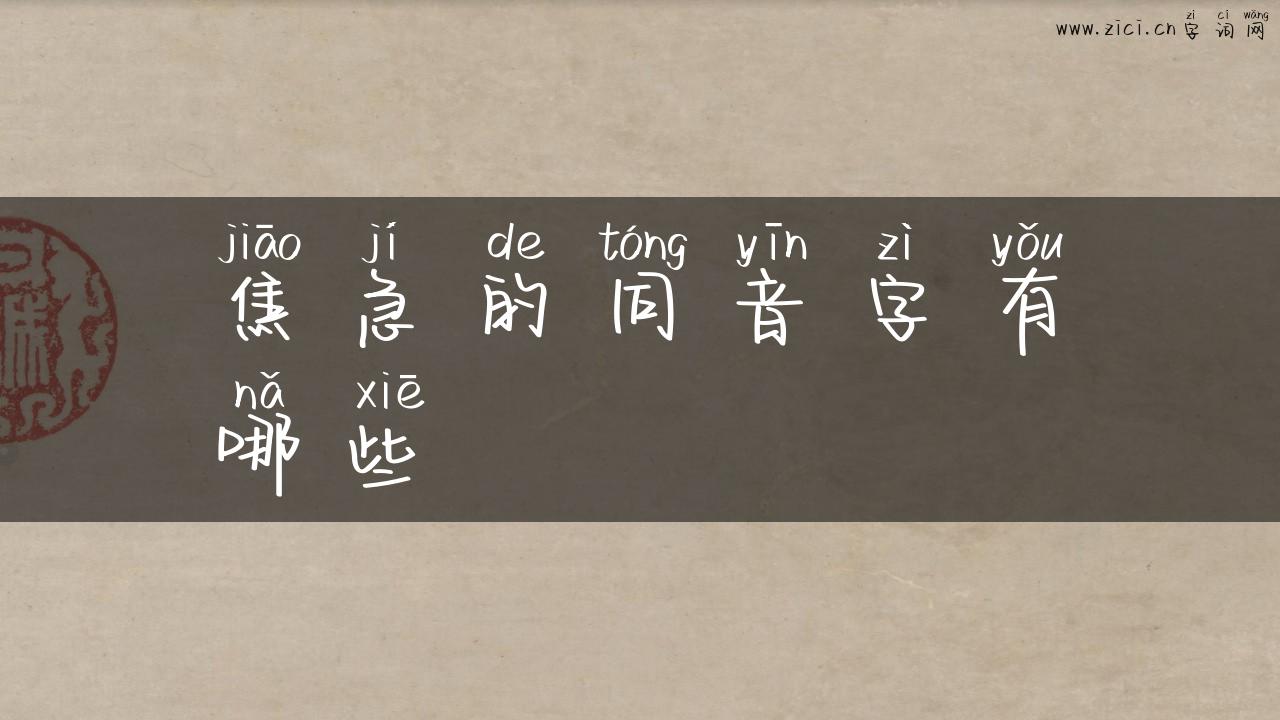 zì cí wǎng
www.zici.cn 字词网
jiāo jí de tóng yīn zì yǒu
焦急的同音字有
nǎ xiē
哪些